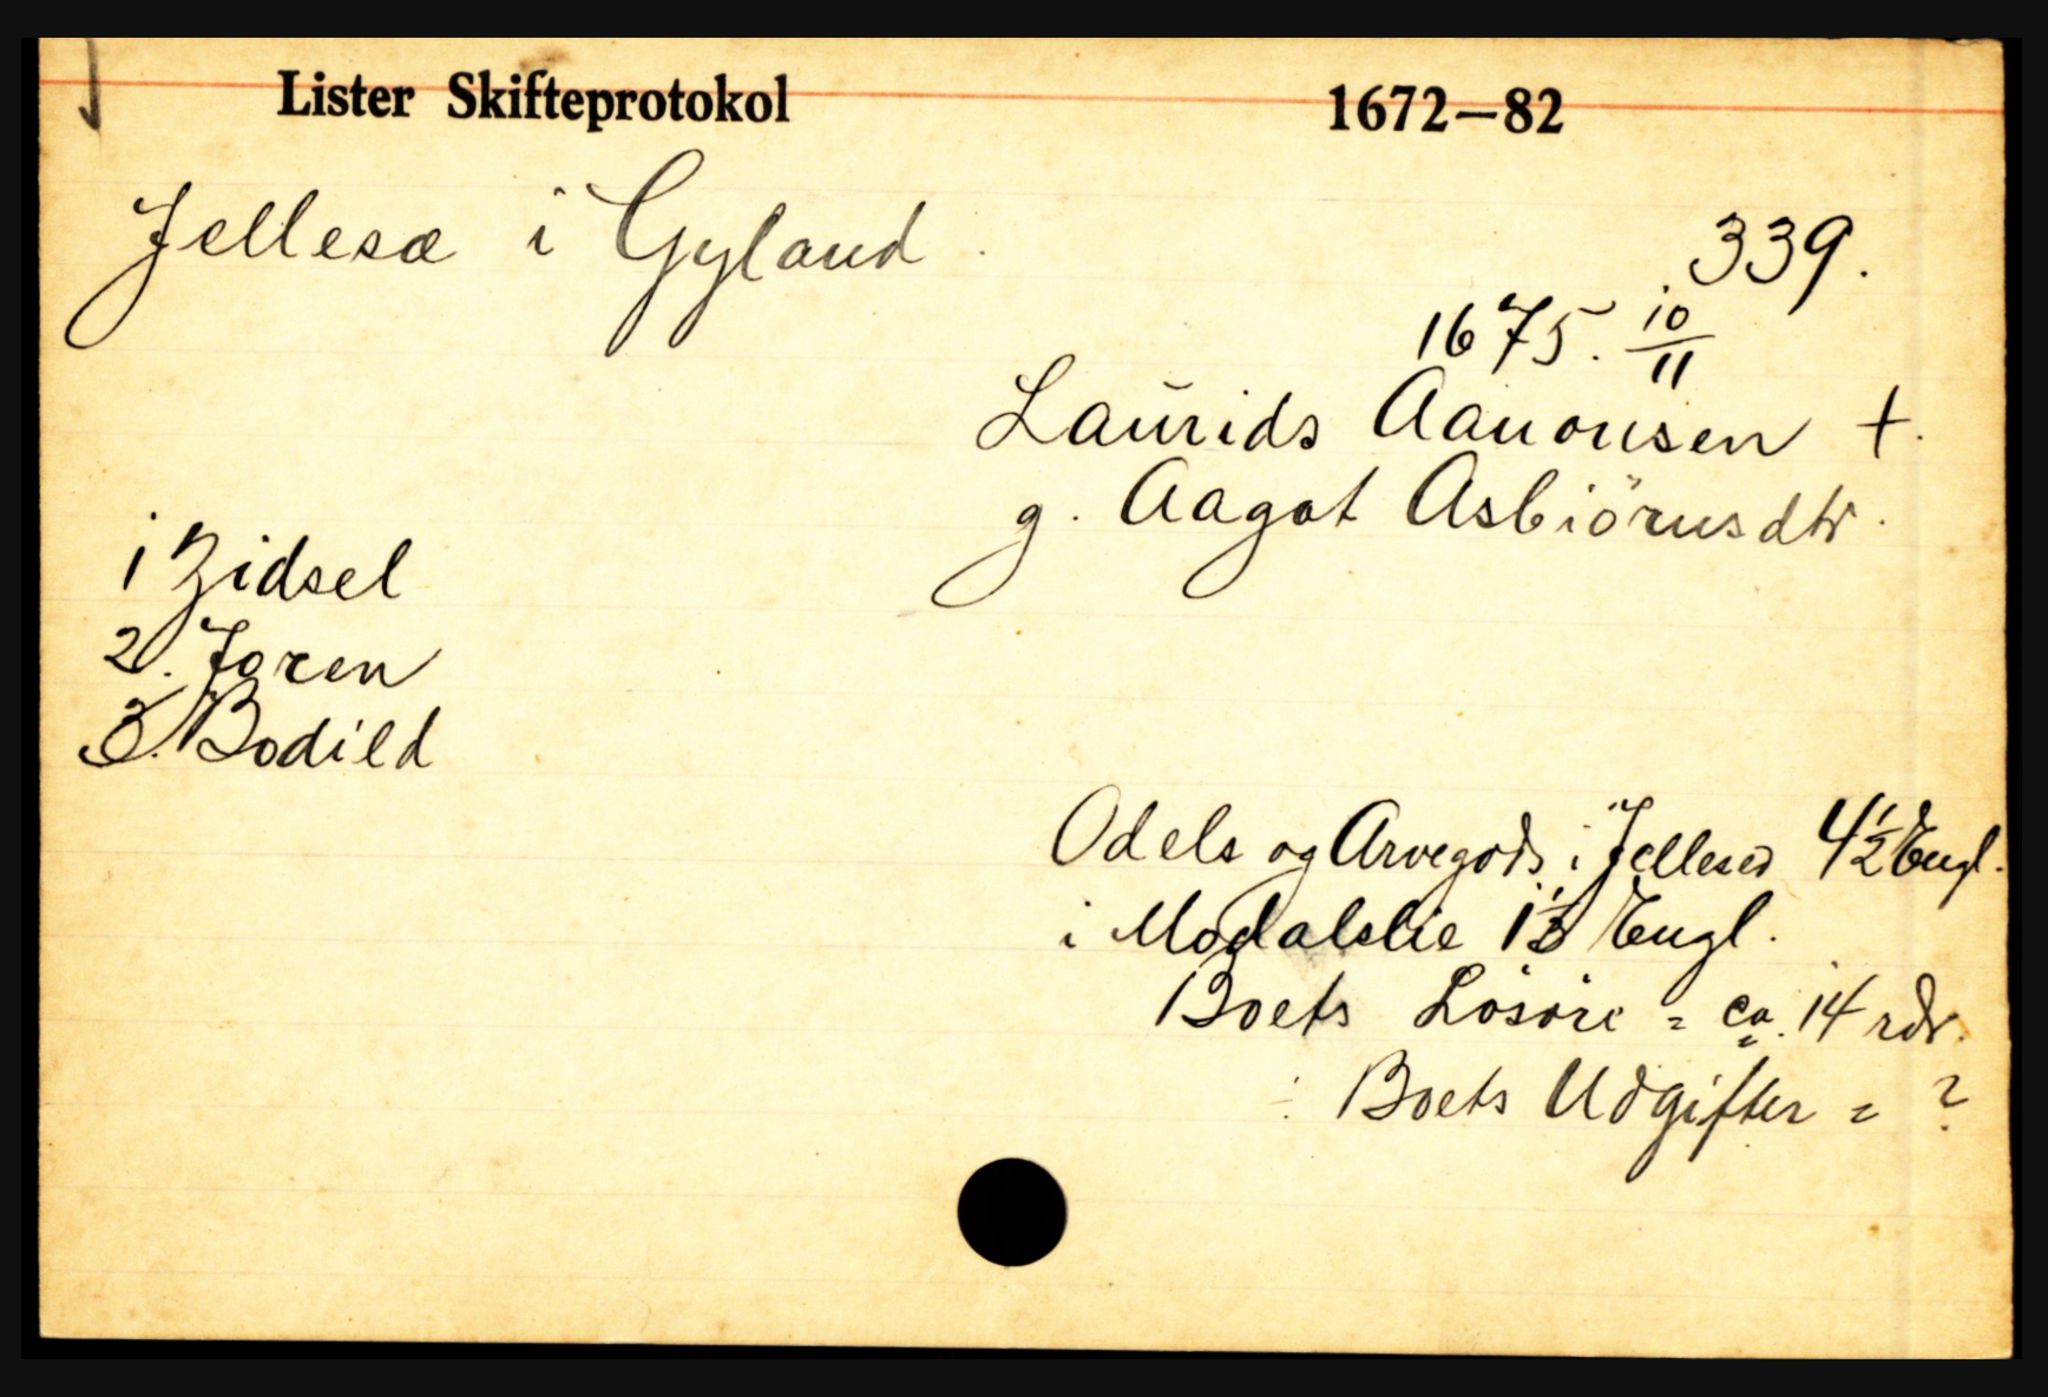 Lister Skifteprotokol 1672—82
Jellesæ i Gyland.
339.
1675. 10/11
Laurids Aanonsen +.
g. Aagot Asbiörnsdtr.
1 Zidsel
2. Joren
3. Bodild
Odels og Arvegods i Jellesæ 4 1/2 Engl.
i Modalslie 1 1/3 Engl.
Boets Lösöre = ca. 14 rdr.
÷ Boets Udgifter = ?